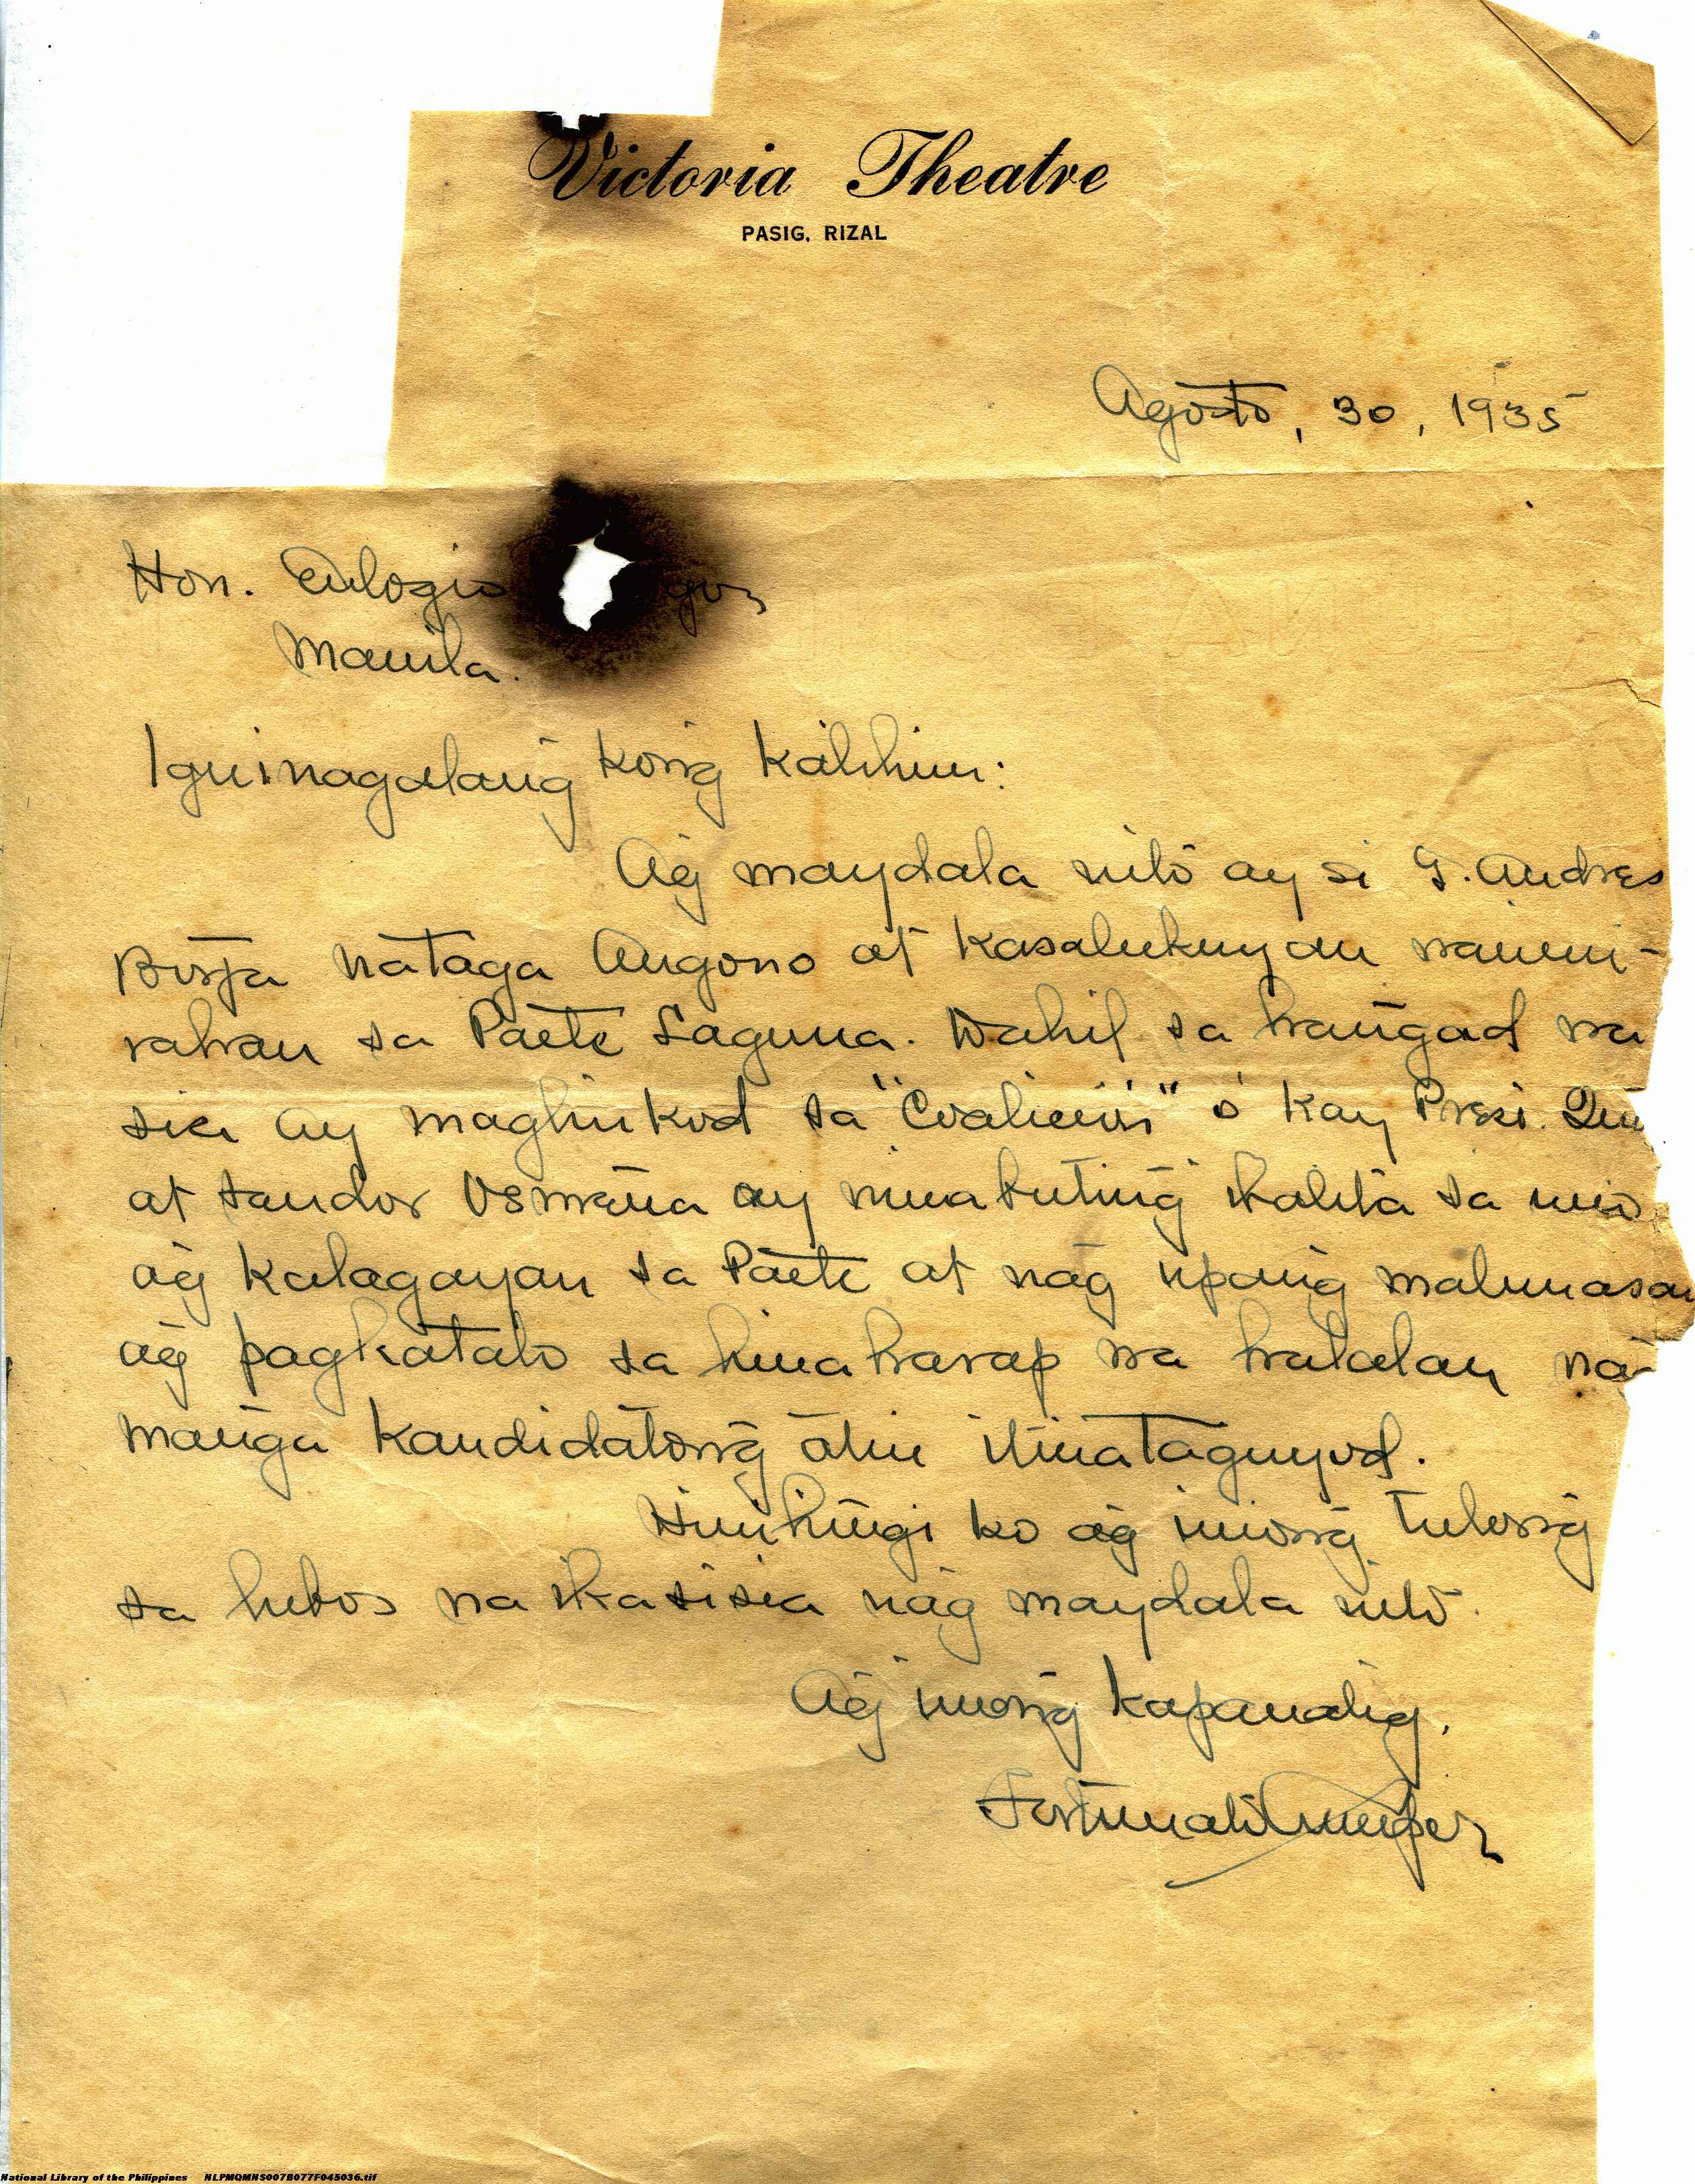 Victoria Theatre
PASIG, RIZAL
Agosto, 30, 1935
Hon. Eulogio
Manila.
Iguinagalang kong kalihim:
Ag maydala nito ay si G. Andres
Borja na taga Angono at kasalukuyan nanini-
rahan sa Paete Laguna. Dahil sa hangad na
sia ay maglinkod sa "Coalicion" o kay Presi. Que
at sandor Osmeña ay minabuting ibalita sa inio
ag kalagayan sa Paete at nag upang malunasan
ag pagkatalo sa hinaharap na halalan na
mañga kandidatong atin itinataguyod.
Hinihingi ko ag iniong tulong
sa lubos na ikasisia nag maydala nito.
Ag iniong kapanalig,
National Library of the Philippines NLPMQMNS007B077F045036.tif